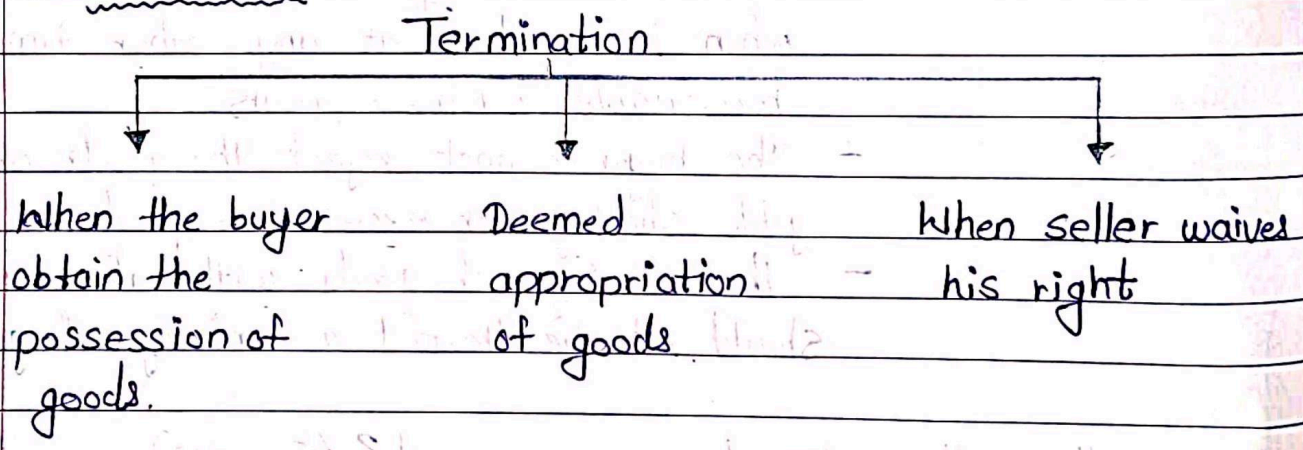 Termination
When the buyer
obtain the
possession of
goods.
Deemed
appropriation.
of goods
When seller waives
his right